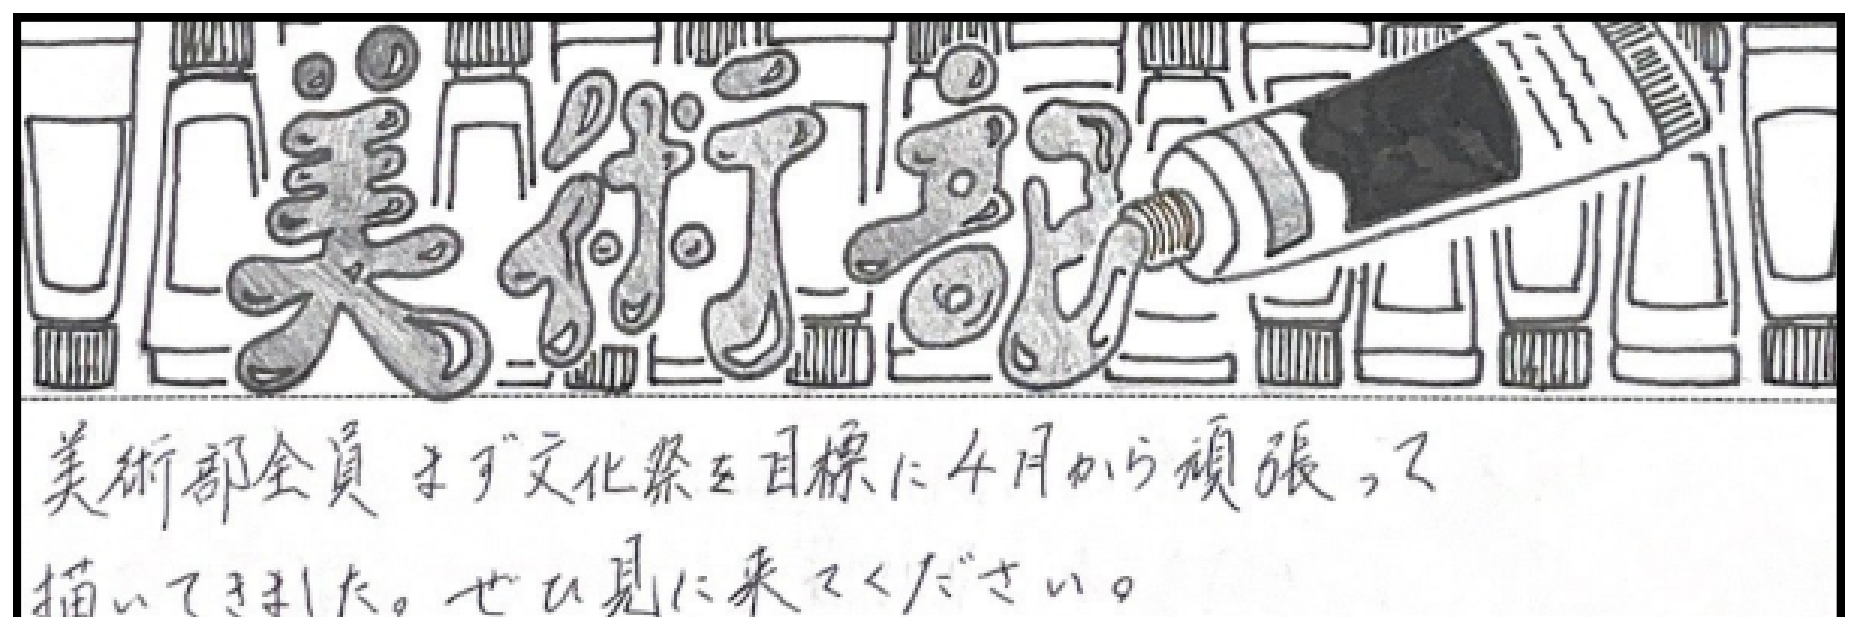 美術部
美術部全員 まず文化祭を目標に4月から頑張って
描いてきました。ぜひ見に来てください。